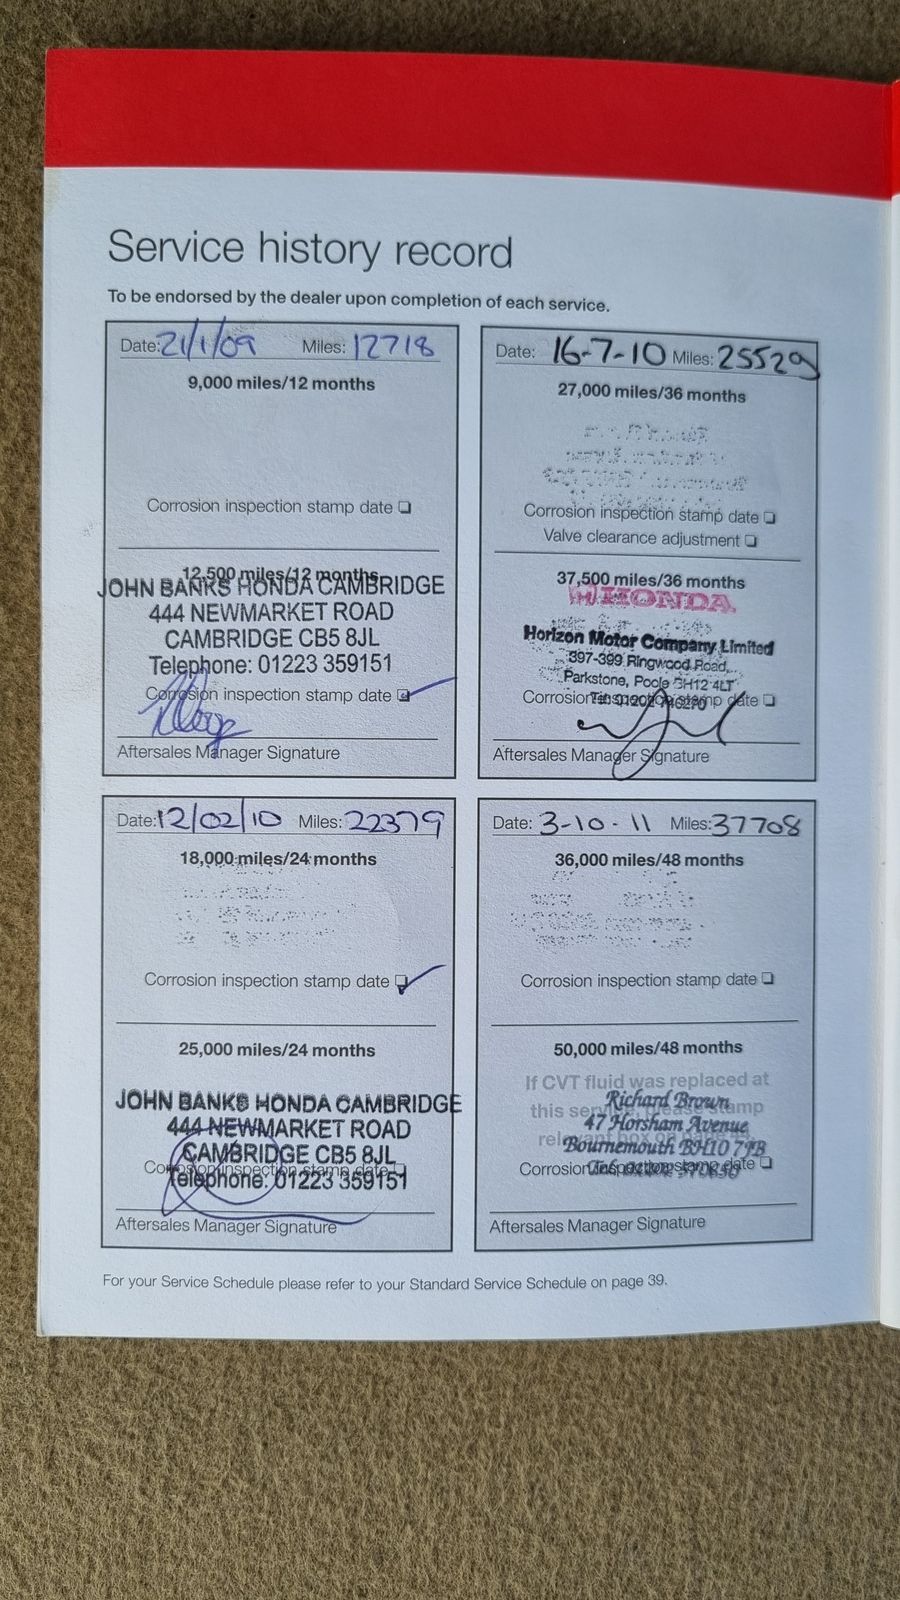 Service history record
To be endorsed by the dealer upon completion of each service.
Date: 21/1/09 Miles: 12718
9,000 miles/12 months
Corrosion inspection stamp date
12,500 miles/12 months
JOHN BANKS HONDA CAMBRIDGE
444 NEWMARKET ROAD
CAMBRIDGE CB5 8JL
Telephone: 01223 359151
Corrosion inspection stamp date
Aftersales Manager Signature
Date: 16-7-10 Miles: 25529
27,000 miles/36 months
Corrosion inspection stamp date
Valve clearance adjustment
37,500 miles/36 months
HONDA
Horizon Motor Company Limited
397-399 Ringwood Road,
Parkstone, Poole BH12 4LT
Corrosion inspection stamp date
Aftersales Manager Signature
Date: 12/02/10 Miles: 22379
18,000 miles/24 months
Corrosion inspection stamp date
25,000 miles/24 months
JOHN BANKS HONDA CAMBRIDGE
444 NEWMARKET ROAD
CAMBRIDGE CB5 8JL
Corrosion inspection stamp date
Telephone: 01223 359151
Aftersales Manager Signature
Date: 3-10-11 Miles: 37708
36,000 miles/48 months
Corrosion inspection stamp date
50,000 miles/48 months
If CVT fluid was replaced at
Richard Brown
this service, please stamp
47 Horsham Avenue
Bournemouth BH10 7JB
Corrosion inspection stamp date
Aftersales Manager Signature
For your Service Schedule please refer to your Standard Service Schedule on page 39.